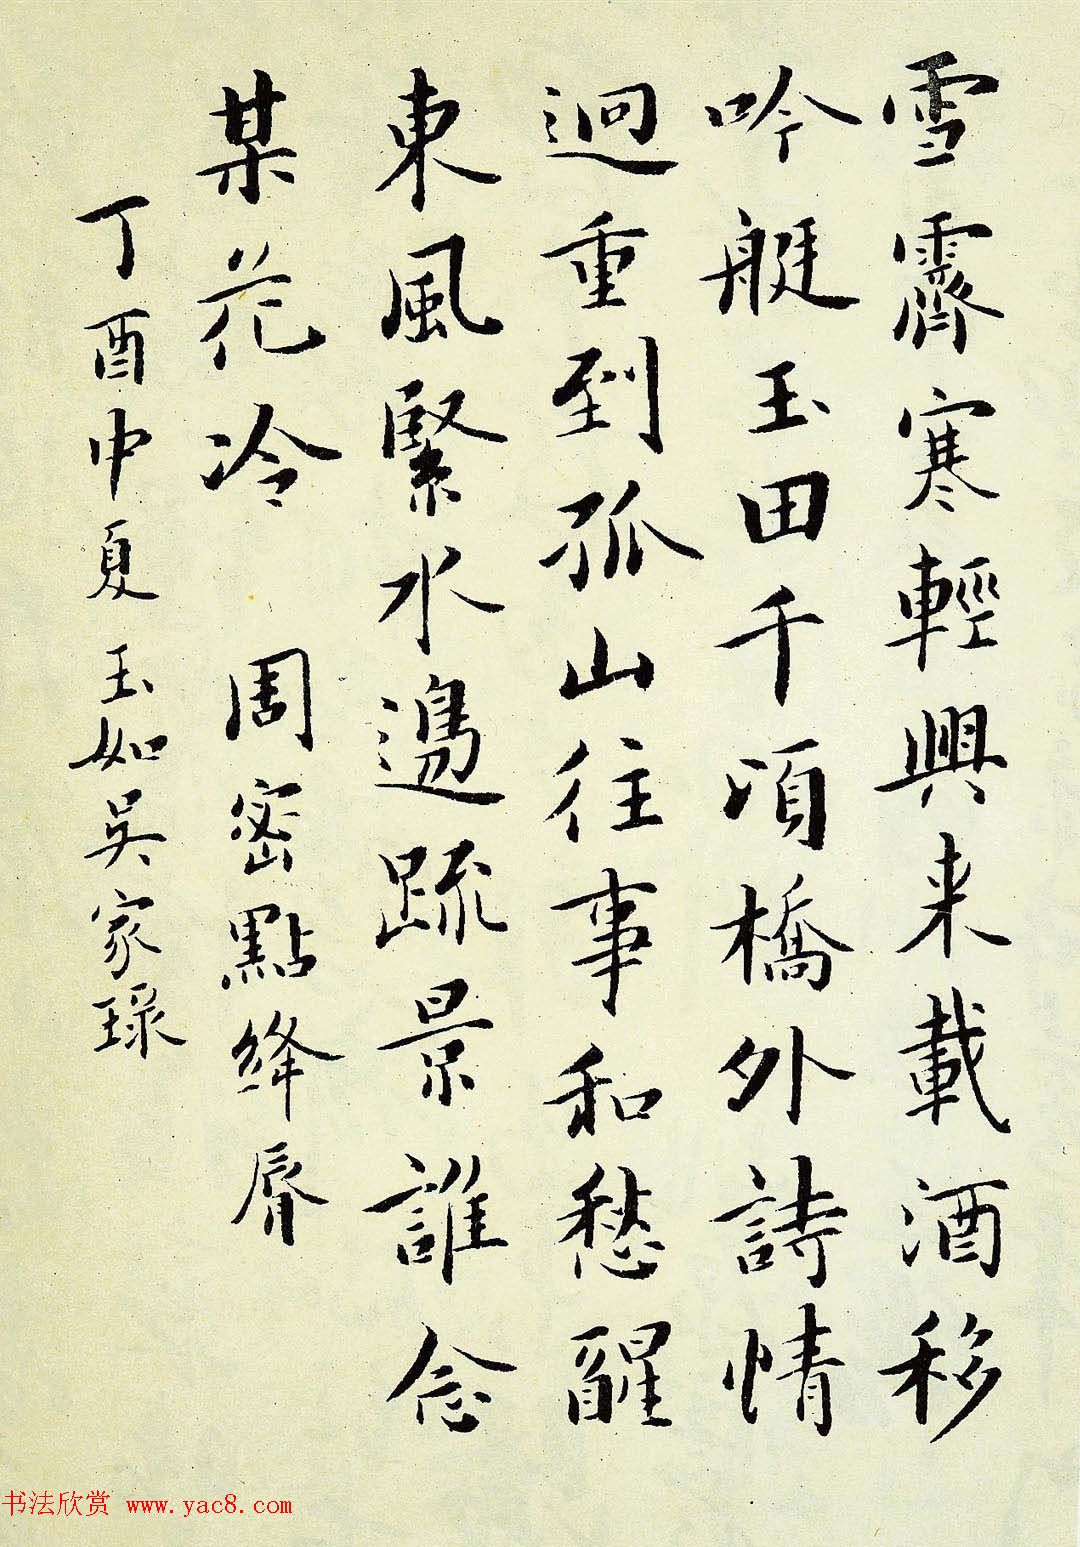 雪霽寒輕興来載酒移
吟艇玉田千頃橋外詩情
迥重到孤山往事和愁醒
東風緊水邊疏景誰念
某花冷 周密點絳脣
丁酉中夏玉如吳家琭
书法欣赏 www.yac8.com